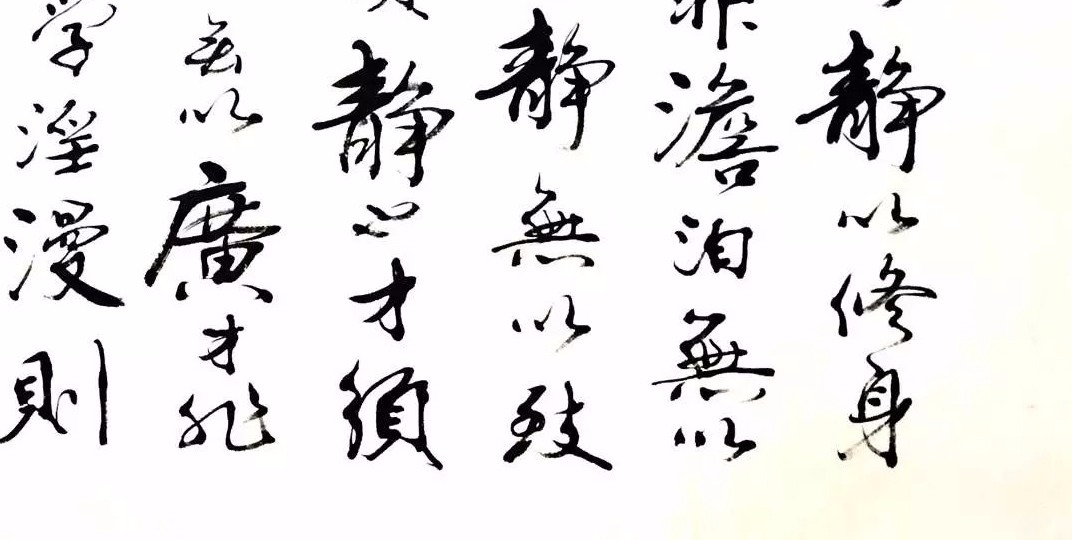 静以修身
非澹泊無以
静無以致
静也才須
無以廣才非
學淫漫則